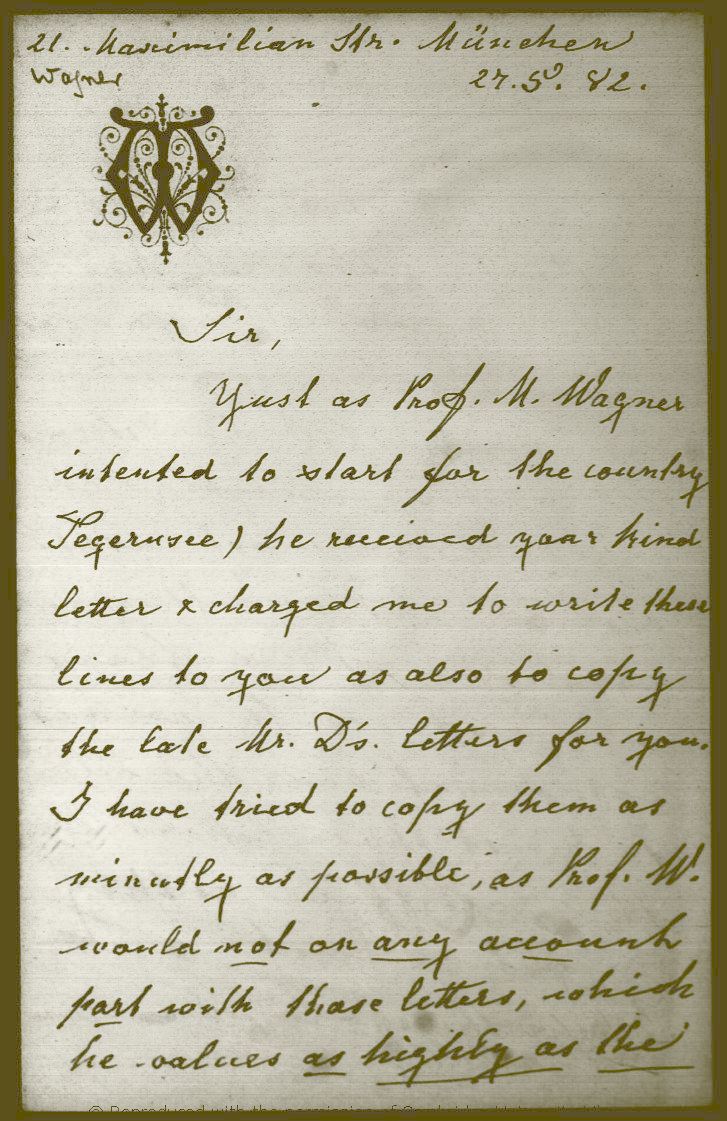 21. Maximilian Str. München
Wagner
27. 5. 82.
Sir,
Yust as Prof. M. Wagner
intented to start for the country
Tegernsee) he received your kind
letter & charged me to write these
lines to you as also to copy
the late Mr. D's. letters for you.
I have tried to copy them as
minutly as possible, as Prof. W.
would not on any account
part with those letters, which
he values as highly as the
© Reproduced with the permission of Cambridge University